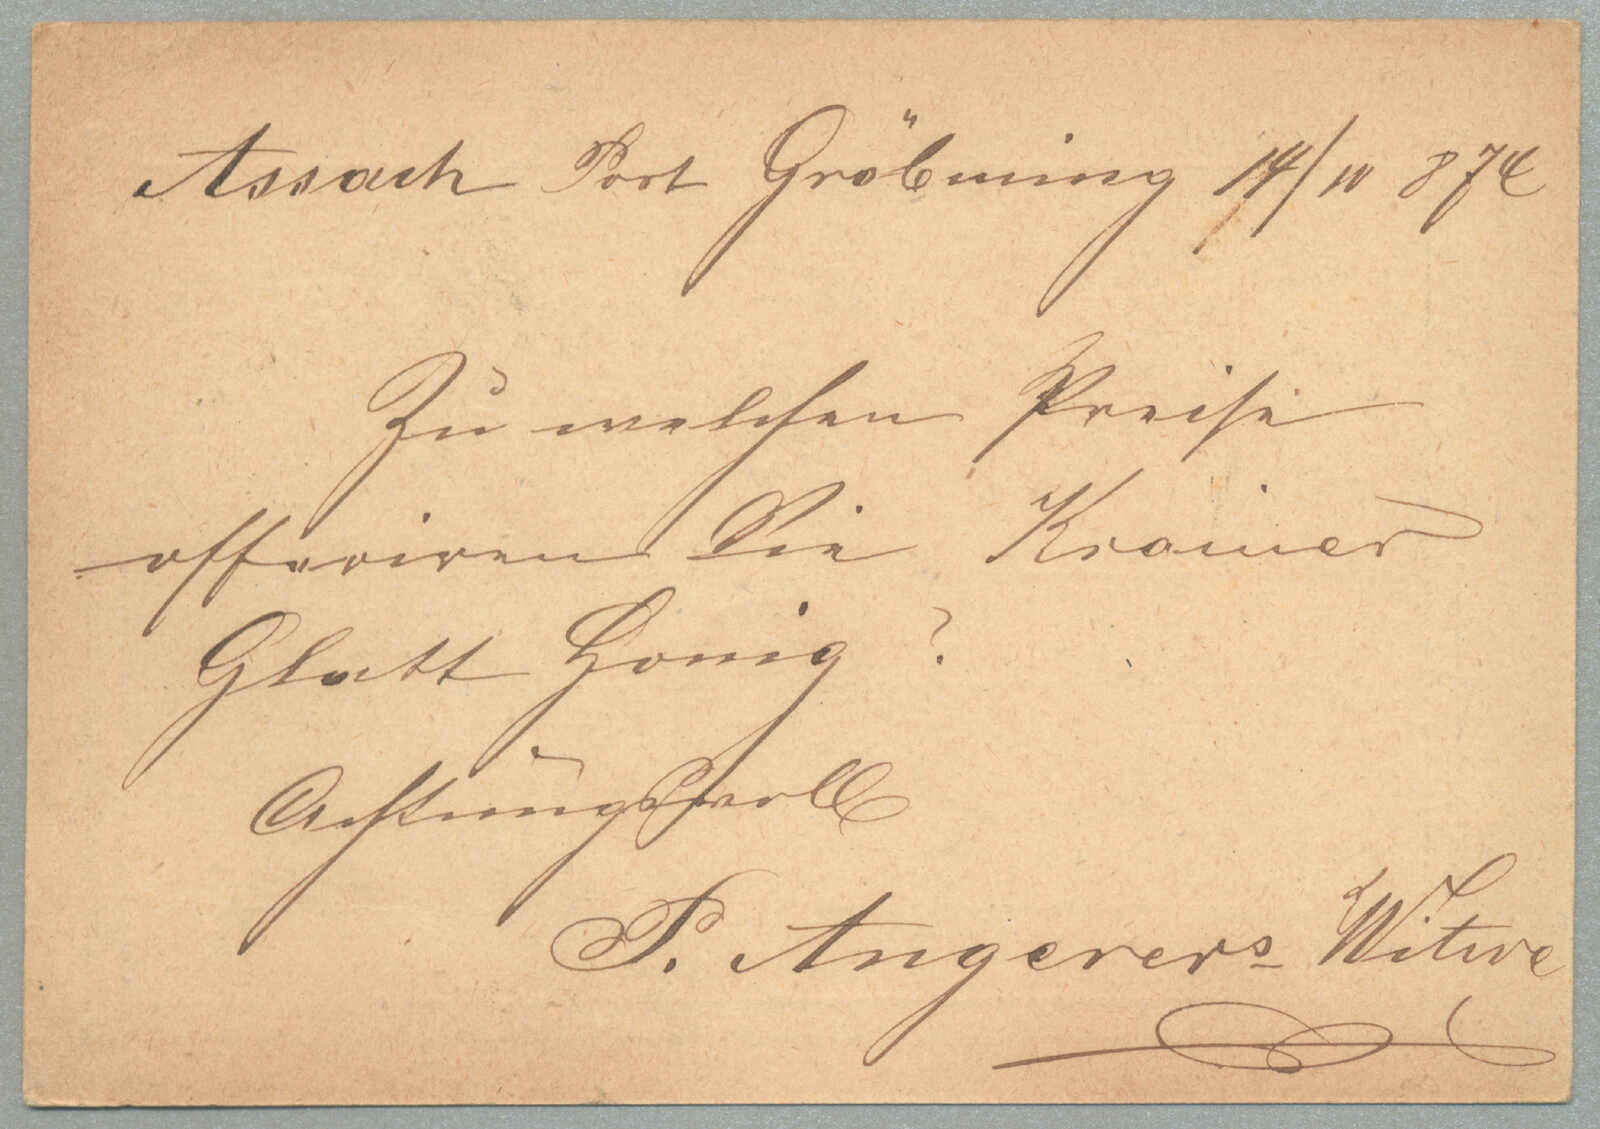 Assach Post Gröbming 14/10 874
Zu welchen Preise
offeriren Sie Krainer
Glatt Honig?
Achtungsvoll
P. Angerers Witwe